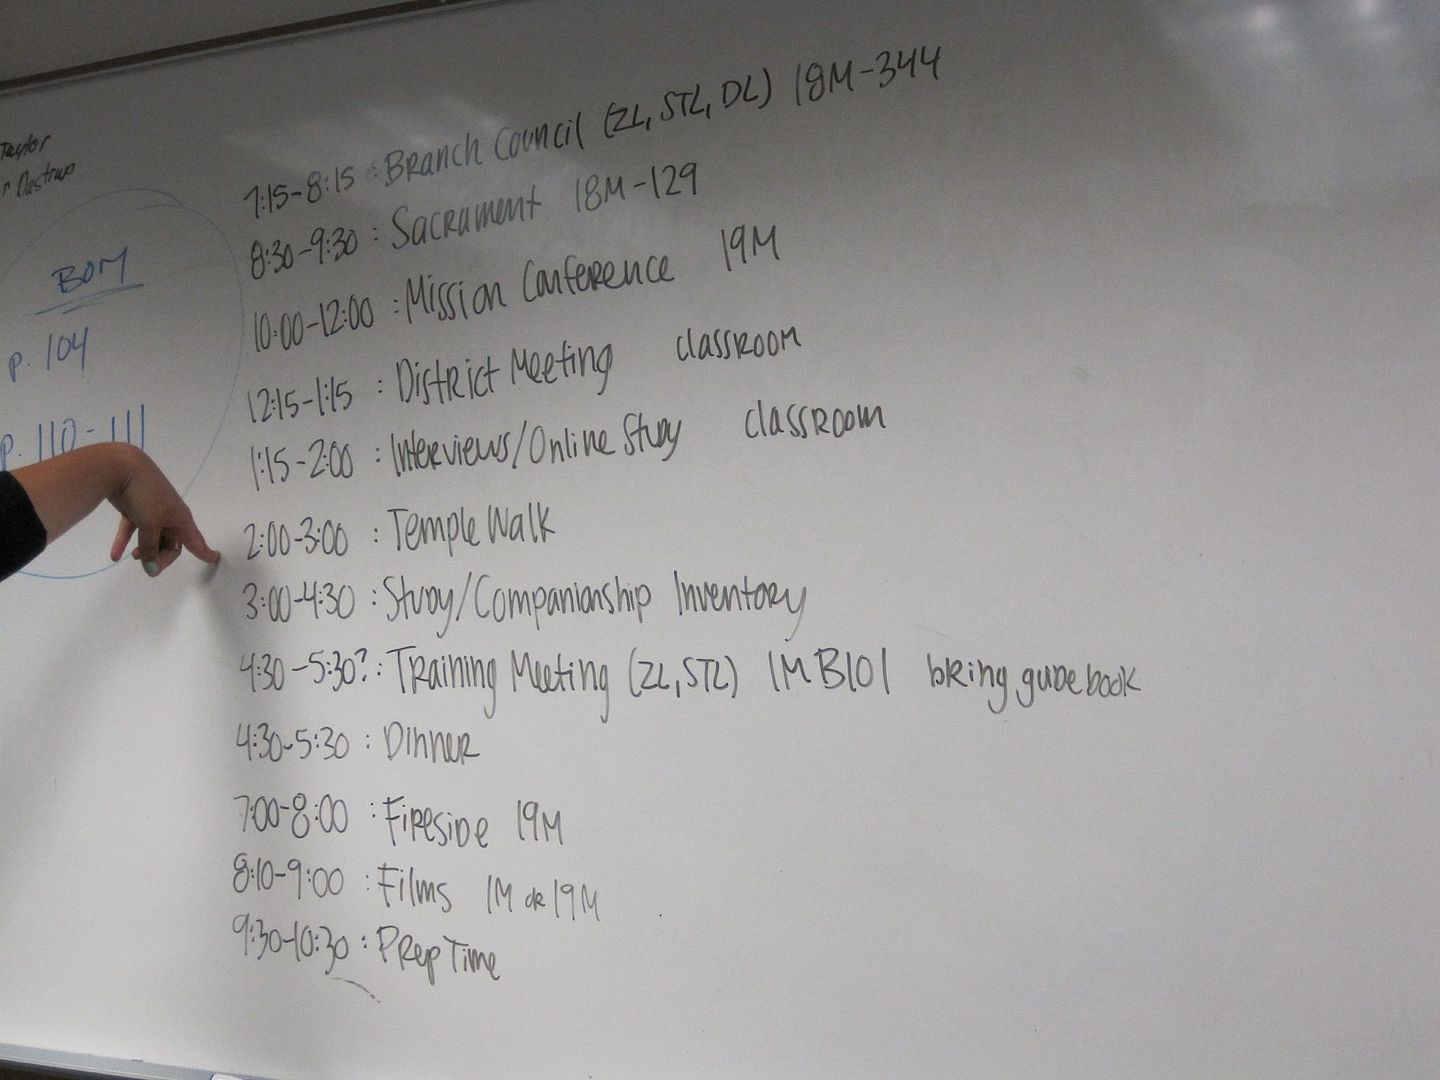 Taylor
BOM
p. 104
p. 110-111
7:15-8:15 : Branch Council (ZL, STL, DL) 18M-344
8:30-9:30 : Sacrament 18M-129
10:00-12:00 : Mission Conference 19M
12:15-1:15 : District Meeting classroom
1:15-2:00 : Interviews/Online Study classroom
2:00-3:00 : Temple Walk
3:00-4:30 : Study/Companionship Inventory
4:30-5:30? : Training Meeting (ZL, STL) 1M B101 bring guidebook
4:30-5:30 : Dinner
7:00-8:00 : Fireside 19M
8:10-9:00 : Films 1M or 19M
9:30-10:30 : Prep Time